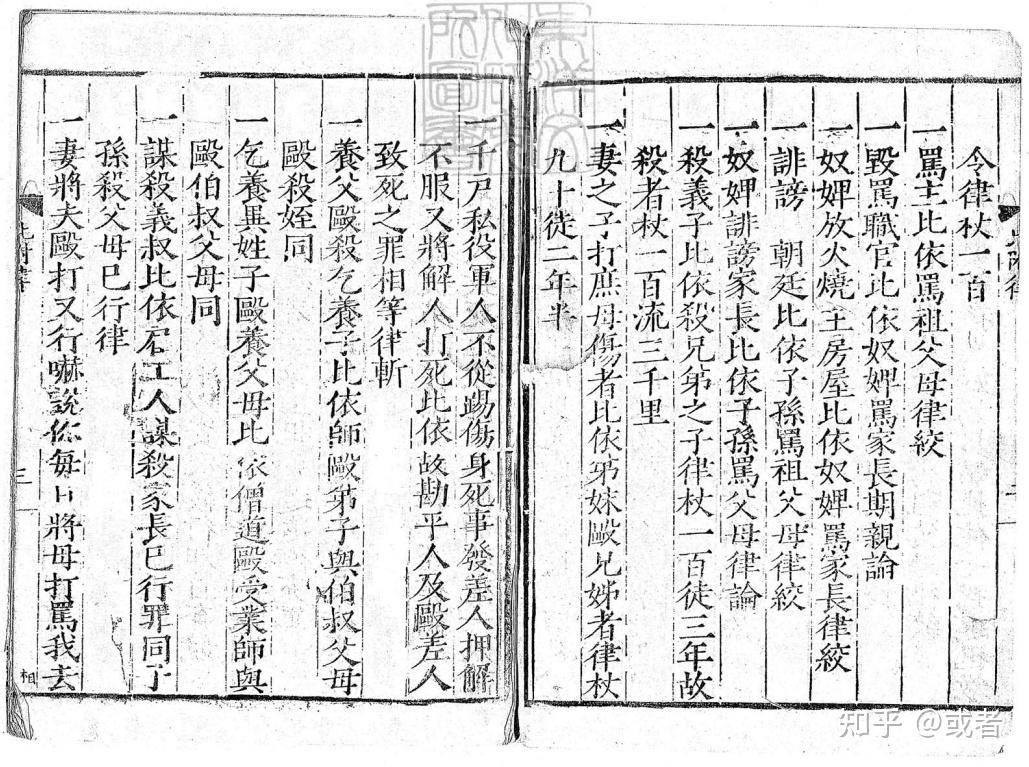 令律杖一百
一罵主比依罵祖父母律絞
一毀罵職官比依奴婢罵家長期親論
一奴婢放火燒主房屋比依奴婢罵家長律絞
一誹謗 朝廷比依子孫罵祖父母律絞
一奴婢誹謗家長比依子孫罵父母律論
一殺義子比依殺兄弟之子律杖一百徒三年故
殺者杖一百流三千里
一妻之子打庶母傷者比依弟妹毆兄姊者律杖
九十徒二年半
一千戶私役軍人不從踢傷身死事發差人押解
不服又將解人打死比依故勘平人及毆差人
致死之罪相等律斬
一養父毆殺乞養子比依師毆弟子與伯叔父母
毆殺姪同
一乞養異姓子毆養父母比依僧道毆受業師與
毆伯叔父母同
一謀殺義叔比依雇工人謀殺家長已行罪同子
孫殺父母已行律
一妻將夫毆打又行嚇說你每日將母打罵我去
三
相
知乎 @或者